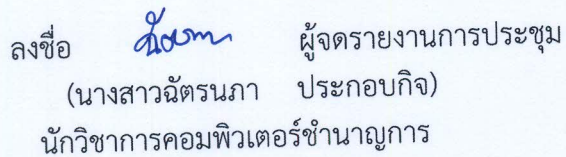 ลงชื่อ ผู้จดรายงานการประชุม
(นางสาวฉัตรนภา ประกอบกิจ)
นักวิชาการคอมพิวเตอร์ชำนาญการ